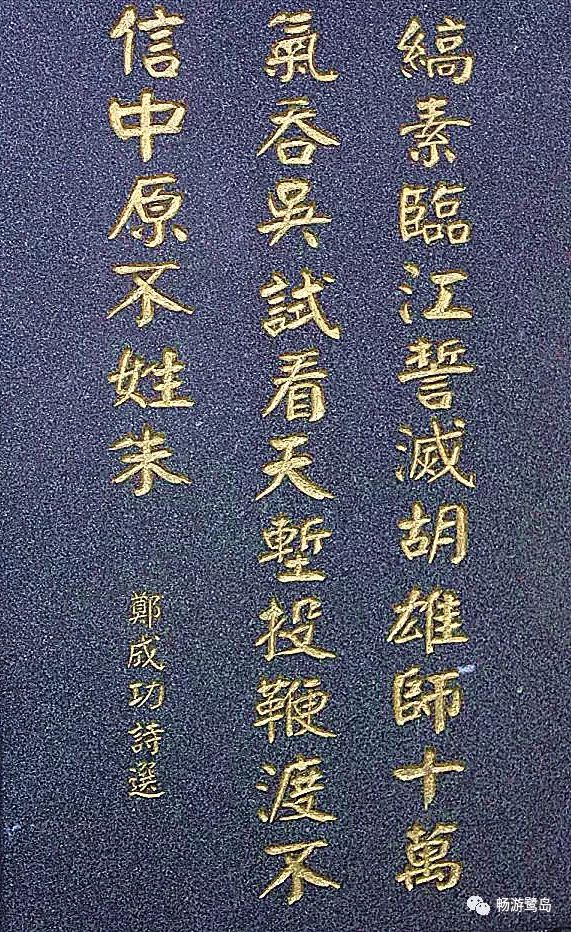 縞素臨江誓滅胡雄師十萬
氣吞吳試看天塹投鞭渡不
信中原不姓朱
鄭成功詩選
畅游鹭岛